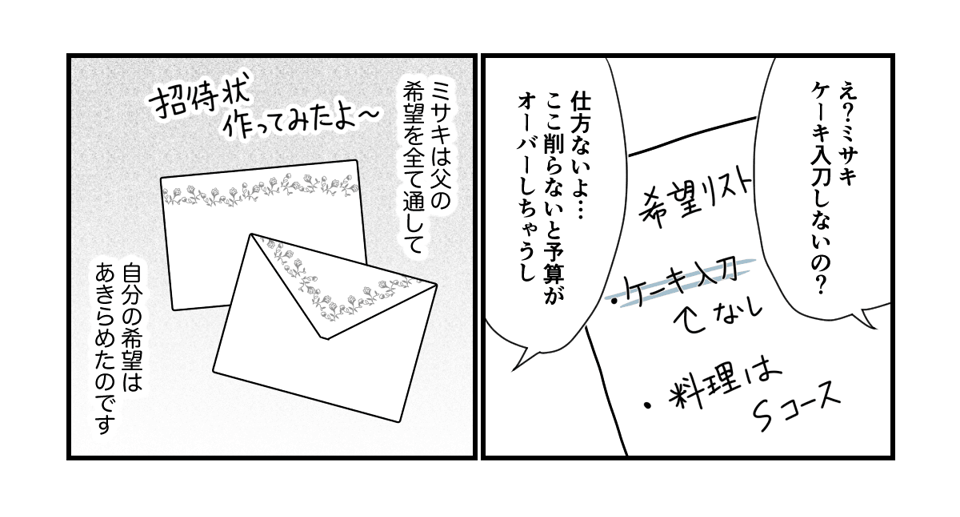 え?ミサキ
ケーキ入刀しないの?
希望リスト
・ケーキ入刀
↑なし
・料理は
Sコース
仕方ないよ…
ここ削らないと予算が
オーバーしちゃうし
ミサキは父の
希望を全て通して
招待状
作ってみたよ〜
自分の希望は
あきらめたのです